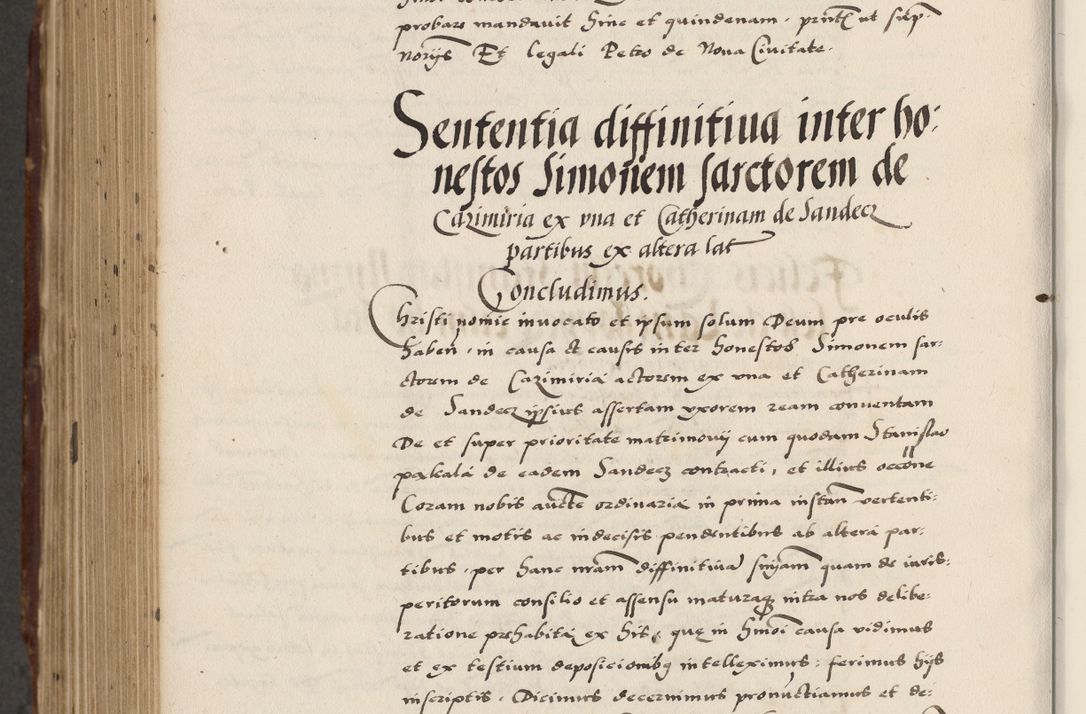 probare mandauit hinc et quindenam · pñtēs ut sup·
norijs Et legali Petro de Noua Ciuitate·
Sententia diffinitiua inter ho:
nestos Simonem sarctorem de
Cazimiria ex vna et Catherinam de Sandecz
partibus ex altera lat
Concludimus.
Christi nomie inuocato et ipsum solum Deum pre oculis
habeñ · in causa et causis inter honestos Simonem sar:
ctorem de Cazimiria actorem ex vna et Catherinam
de Sandecz ipsius assertam vxorem ream conuentam
De et super prioritate matrimonij cum quodam Stanislao
pakala de eadem Sandecz contracti, et illius occõne
Coram nobis aucte ordinaria in prima instan vertenti:
bus et motis ac indecisis pendentibus ab altera par:
tibus · per hanc nram diffinitiua sniam quam de iuris:
peritorum consilio et assensu maturaq intra nos delibe:
ratione prehabita ex his, quę in hmoi causa vidimus
et ex testium deposicionibq intelleximus: ferimus hijs
inscriptis · Dicimus decernimus pronuctiamus et de: